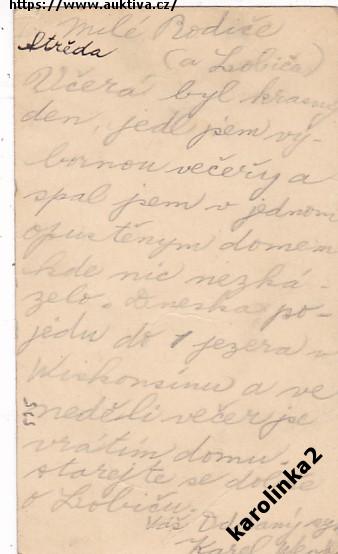 https://www.auktiva.cz/
Milé Rodiče
Středa
(a Lobiča)
Včerá byl krasny
den, jedl jsem vý-
bornou večeřy a
spal jsem v jednom
opustěnym domem
kde nic nezká-
zelo. Dneska po-
jedu do 1 jezera v
Wiskonsinu a ve
neděli večer se
vrátim domu.
starejte se dobře
o Lobiču.
Váš Oddaný syn
Karel
515
karolinka2